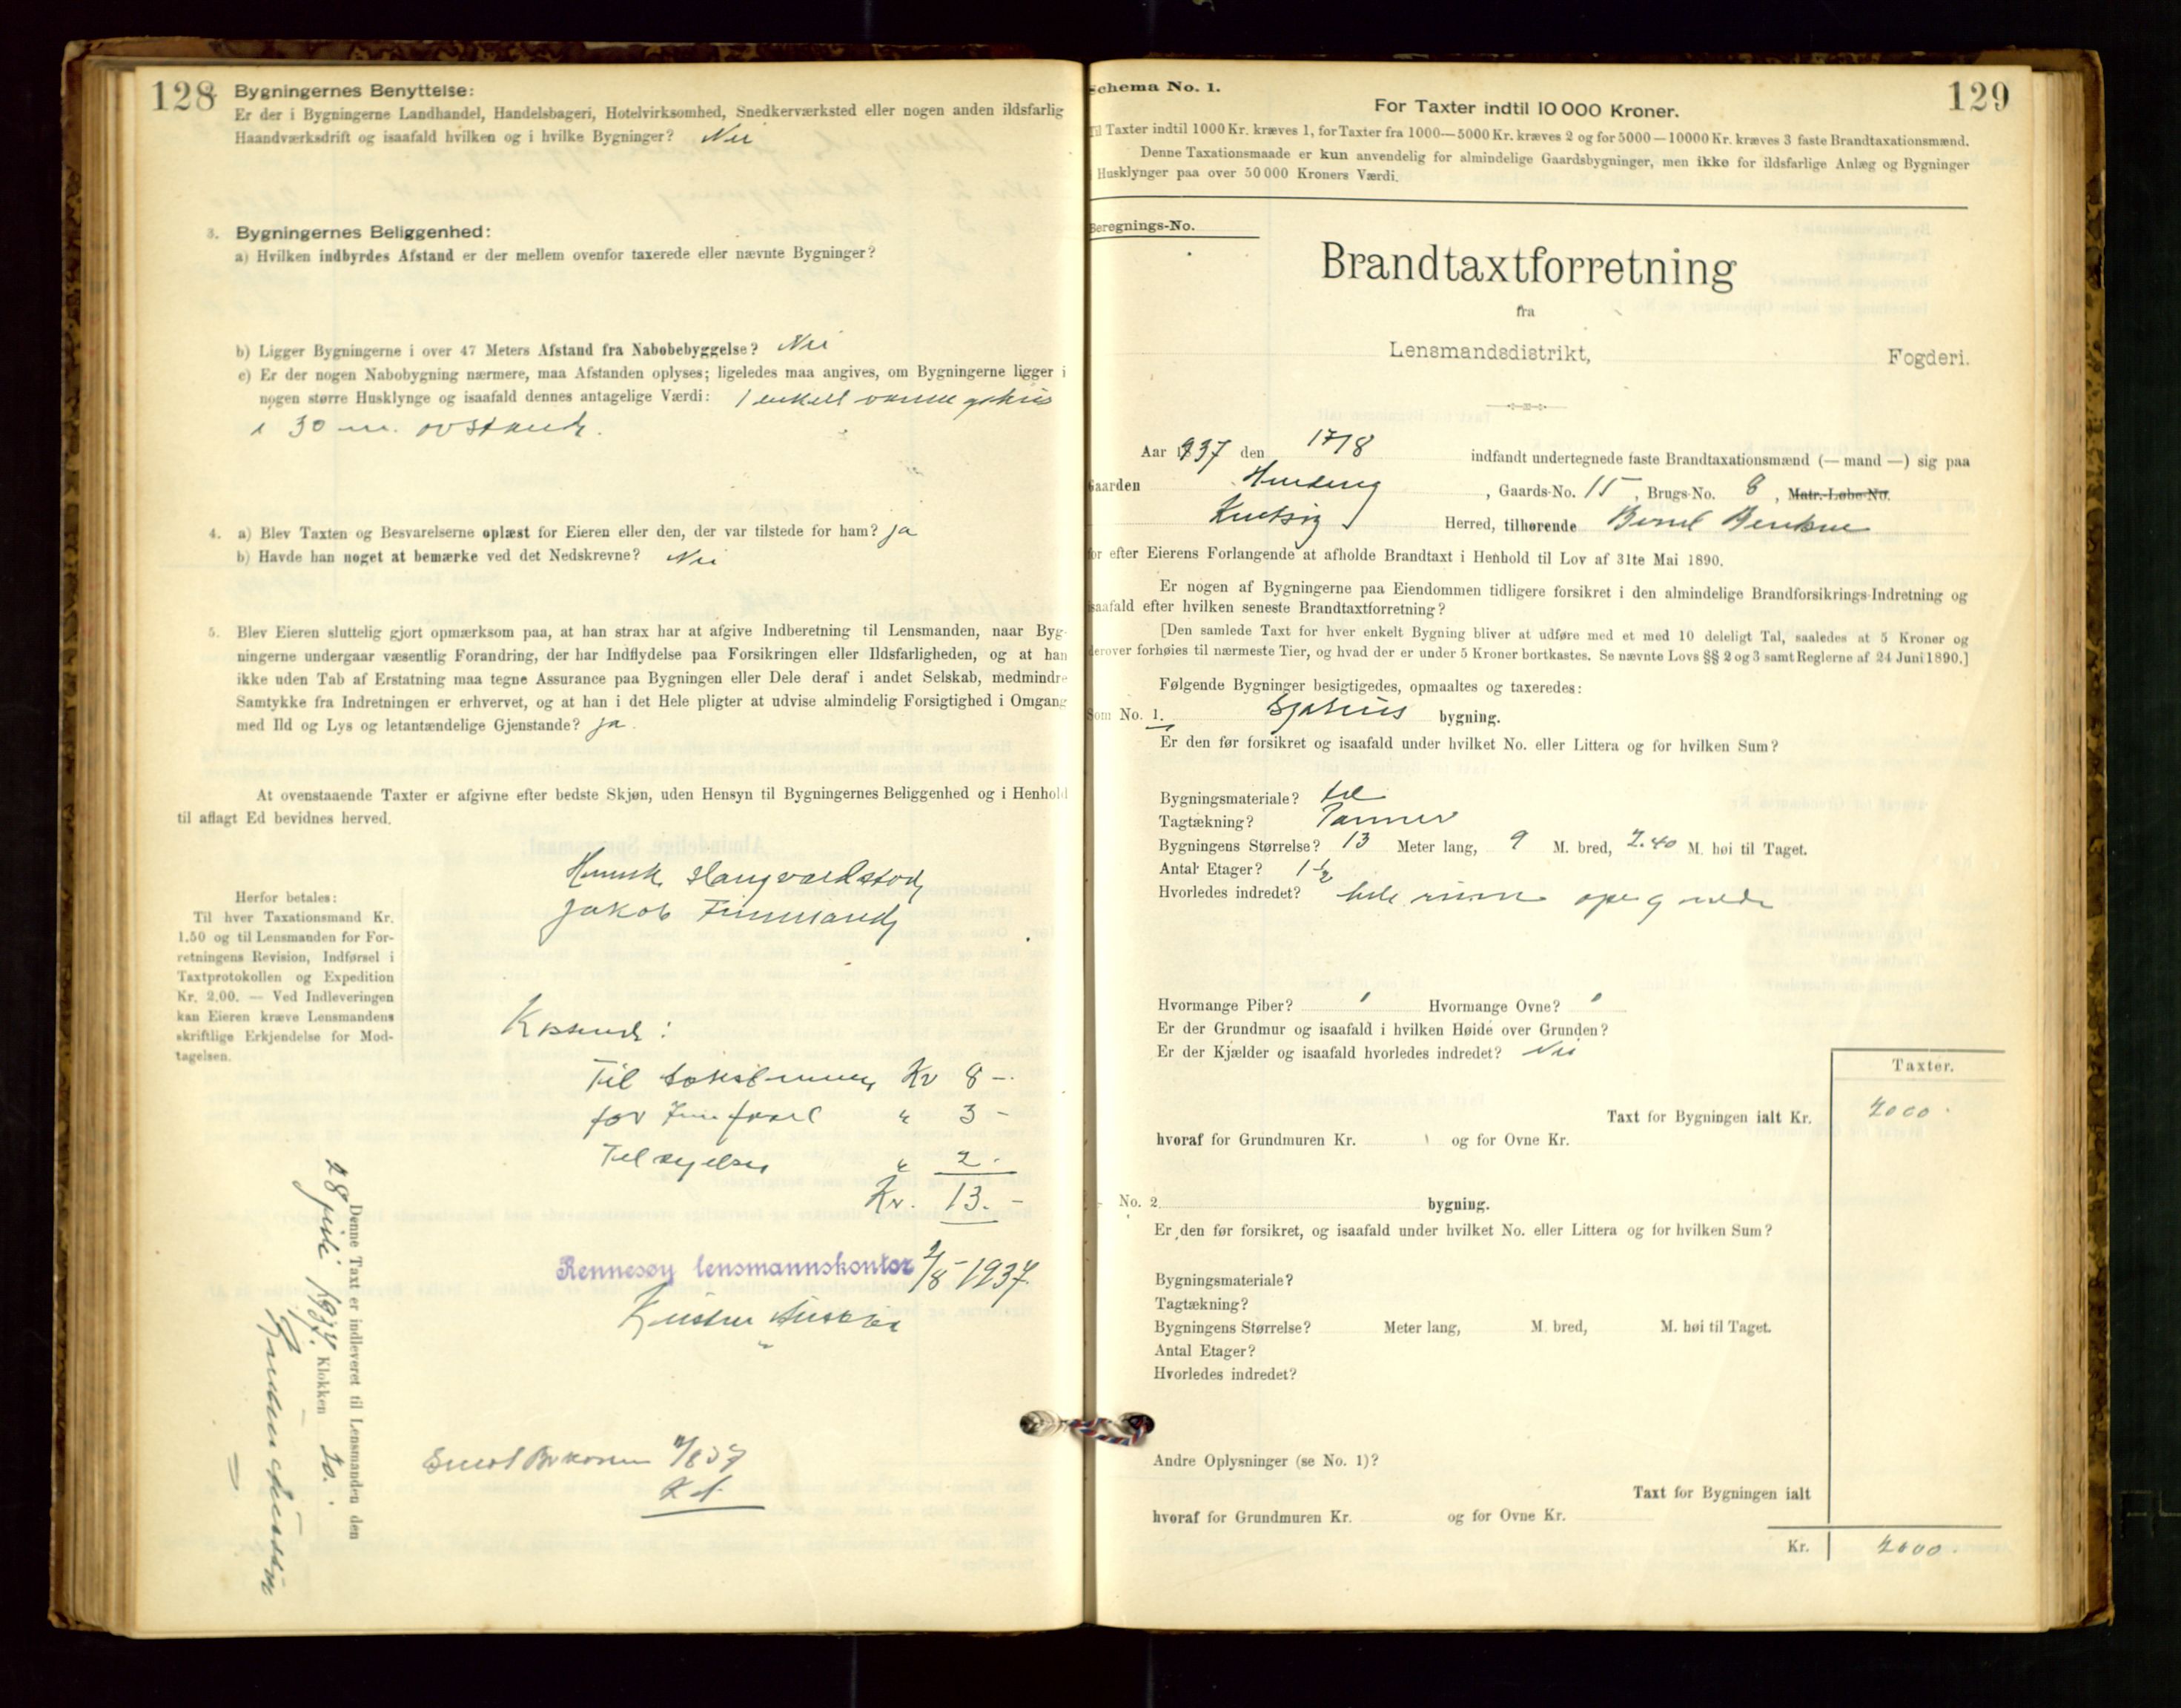 128
Bygningernes Benyttelse:
Er der i Bygningerne Landhandel, Handelsbageri, Hotelvirksomhed, Snedkerværksted eller nogen anden ildsfarlig
Haandværksdrift og isaafald hvilken og i hvilke Bygninger? Nei
3. Bygningernes Beliggenhed:
a) Hvilken indbyrdes Afstand er der mellem ovenfor taxerede eller nævnte Bygninger?
b) Ligger Bygningerne i over 47 Meters Afstand fra Nabobebyggelse? Nei
c) Er der nogen Nabobygning nærmere, maa Afstanden oplyses; ligeledes maa angives, om Bygningerne ligger i
nogen større Husklynge og isaafald dennes antagelige Værdi: 1 enkelt
i 30 m. avstand.
4. a) Blev Taxten og Besvarelserne oplæst for Eieren eller den, der var tilstede for ham? ja
b) Havde han noget at bemærke ved det Nedskrevne? Nei
5. Blev Eieren sluttelig gjort opmærksom paa, at han strax har at afgive Indberetning til Lensmanden, naar Byg-
ningerne undergaar væsentlig Forandring, der har Indflydelse paa Forsikringen eller Ildsfarligheden, og at han
ikke uden Tab af Erstatning maa tegne Assurance paa Bygningen eller Dele deraf i andet Selskab, medmindre
Samtykke fra Indretningen er erhvervet, og at han i det Hele pligter at udvise almindelig Forsigtighed i Omgang
med Ild og Lys og letantændelige Gjenstande? ja.
At ovenstaaende Taxter er afgivne efter bedste Skjøn, uden Hensyn til Bygningernes Beliggenhed og i Henhold
til aflagt Ed bevidnes herved.
Henrik Hangvaldstad
Jakob Finnesand
Herfor betales:
Til hver Taxationsmand Kr.
1.50 og til Lensmanden for For-
retningens Revision, Indførsel i
Taxtprotokollen og Expedition
Kr. 2.00. — Ved Indleveringen
kan Eieren kræve Lensmandens
skriftlige Erkjendelse for Mod-
tagelsen.
Kostnad:
Til Kr 8 -.
for Innførsel " 3 -
" 2.
Kr. 13.-
Rennesøy lensmannskontor 2/8-1937.
Denne Taxt er indleveret til Lensmanden den
28 juli 1937. Klokken 20.
129
Schema No. 1.
For Taxter indtil 10 000 Kroner.
Til Taxter indtil 1000 Kr. kræves 1, for Taxter fra 1000—5000 Kr. kræves 2 og for 5000—10000 Kr. kræves 3 faste Brandtaxationsmænd.
Denne Taxationsmaade er kun anvendelig for almindelige Gaardsbygninger, men ikke for ildsfarlige Anlæg og Bygninger
i Husklynger paa over 50 000 Kroners Værdi.
Beregnings-No.
Brandtaxtforretning
fra
Lensmandsdistrikt, Fogderi.
Aar 1937 den 17/8 indfandt undertegnede faste Brandtaxationsmænd (— mand —) sig paa
Gaarden , Gaards-No. 15, Brugs-No. 8, Matr.-Løbe-No.
Herred, tilhørende
for efter Eierens Forlangende at afholde Brandtaxt i Henhold til Lov af 31te Mai 1890.
Er nogen af Bygningerne paa Eiendommen tidligere forsikret i den almindelige Brandforsikrings-Indretning og
isaafald efter hvilken seneste Brandtaxtforretning?
[Den samlede Taxt for hver enkelt Bygning bliver at udføre med et med 10 deleligt Tal, saaledes at 5 Kroner og
derover forhøies til nærmeste Tier, og hvad der er under 5 Kroner bortkastes. Se nævnte Lovs §§ 2 og 3 samt Reglerne af 24 Juni 1890.]
Følgende Bygninger besigtigedes, opmaaltes og taxeredes:
Som No. 1. Sjøhus bygning.
Er den før forsikret og isaafald under hvilket No. eller Littera og for hvilken Sum?
Bygningsmateriale? tre
Tagtækning? Panner
Bygningens Størrelse? 13 Meter lang, 9 M. bred, 2.40 M. høi til Taget.
Antal Etager? 1 1/2
Hvorledes indredet? hele
Hvormange Piber? Hvormange Ovne?
Er der Grundmur og isaafald i hvilken Høide over Grunden?
Er der Kjælder og isaafald hvorledes indredet? Nei
Taxter.
Taxt for Bygningen ialt Kr. 2000.
hvoraf for Grundmuren Kr. og for Ovne Kr.
No. 2 bygning.
Er den før forsikret, og isaafald under hvilket No. eller Littera og for hvilken Sum?
Bygningsmateriale?
Tagtækning?
Bygningens Størrelse? Meter lang, M. bred, M. høi til Taget.
Antal Etager?
Hvorledes indredet?
Andre Oplysninger (se No. 1)?
Taxt for Bygningen ialt
hvoraf for Grundmuren Kr. og for Ovne Kr.
Kr. 2000.